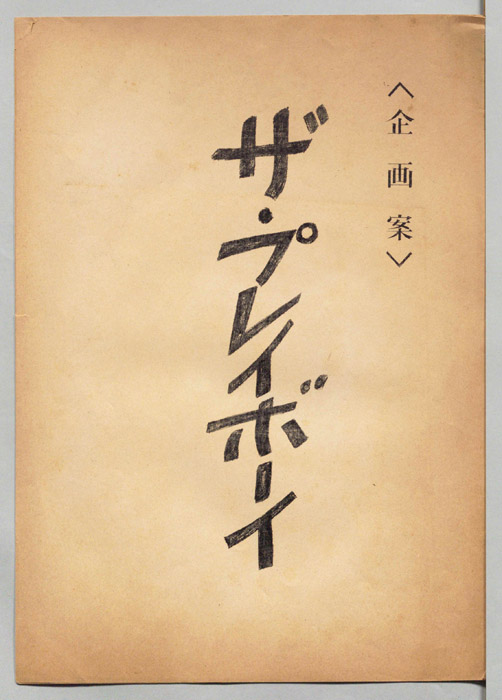 〈企画案〉
ザ・プレイボーイ